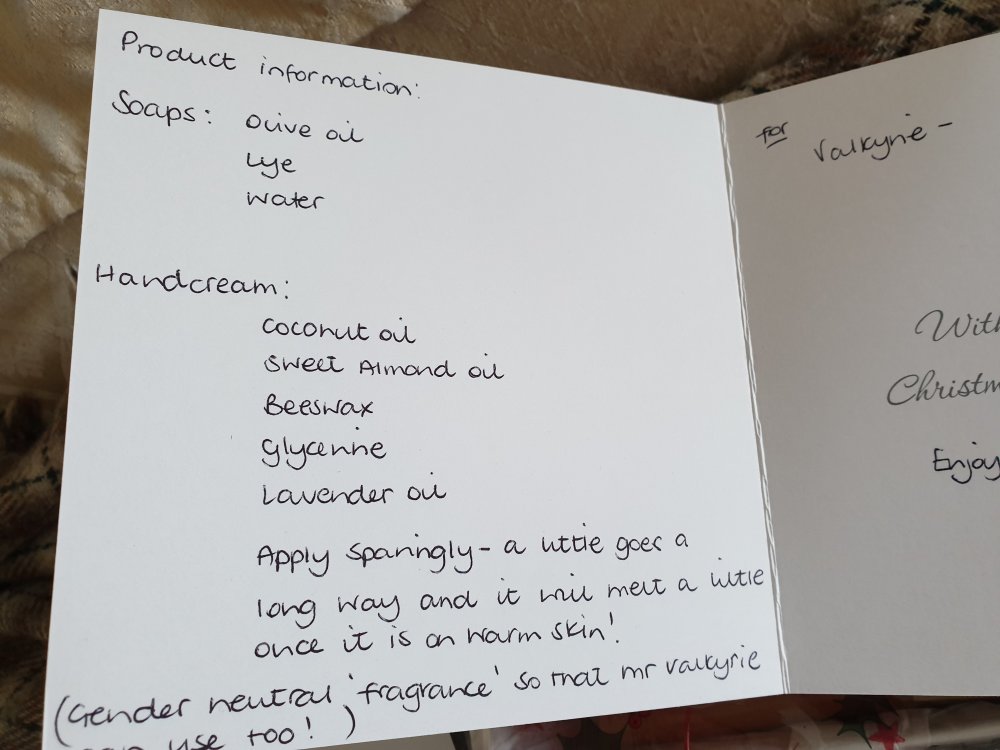 Product information:
Soaps: Olive oil
Lye
Water
Handcream:
Coconut oil
Sweet Almond oil
Beeswax
Glycerine
Lavender oil
Apply sparingly - a little goes a
long way and it will melt a little
once it is on warm skin!
(Gender neutral 'fragrance' so that mr valkyrie
can use too! )
for Valkyrie -
With
Christm
Enjoy